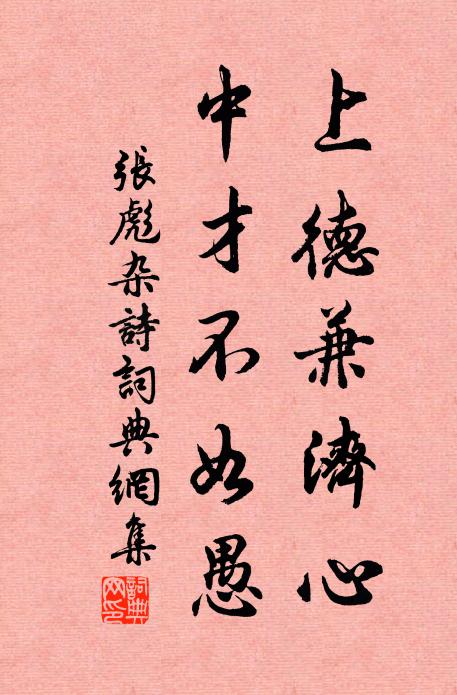 上德兼濟心
中才不如愚
張彪杂詩詞典網集
詞典
网印